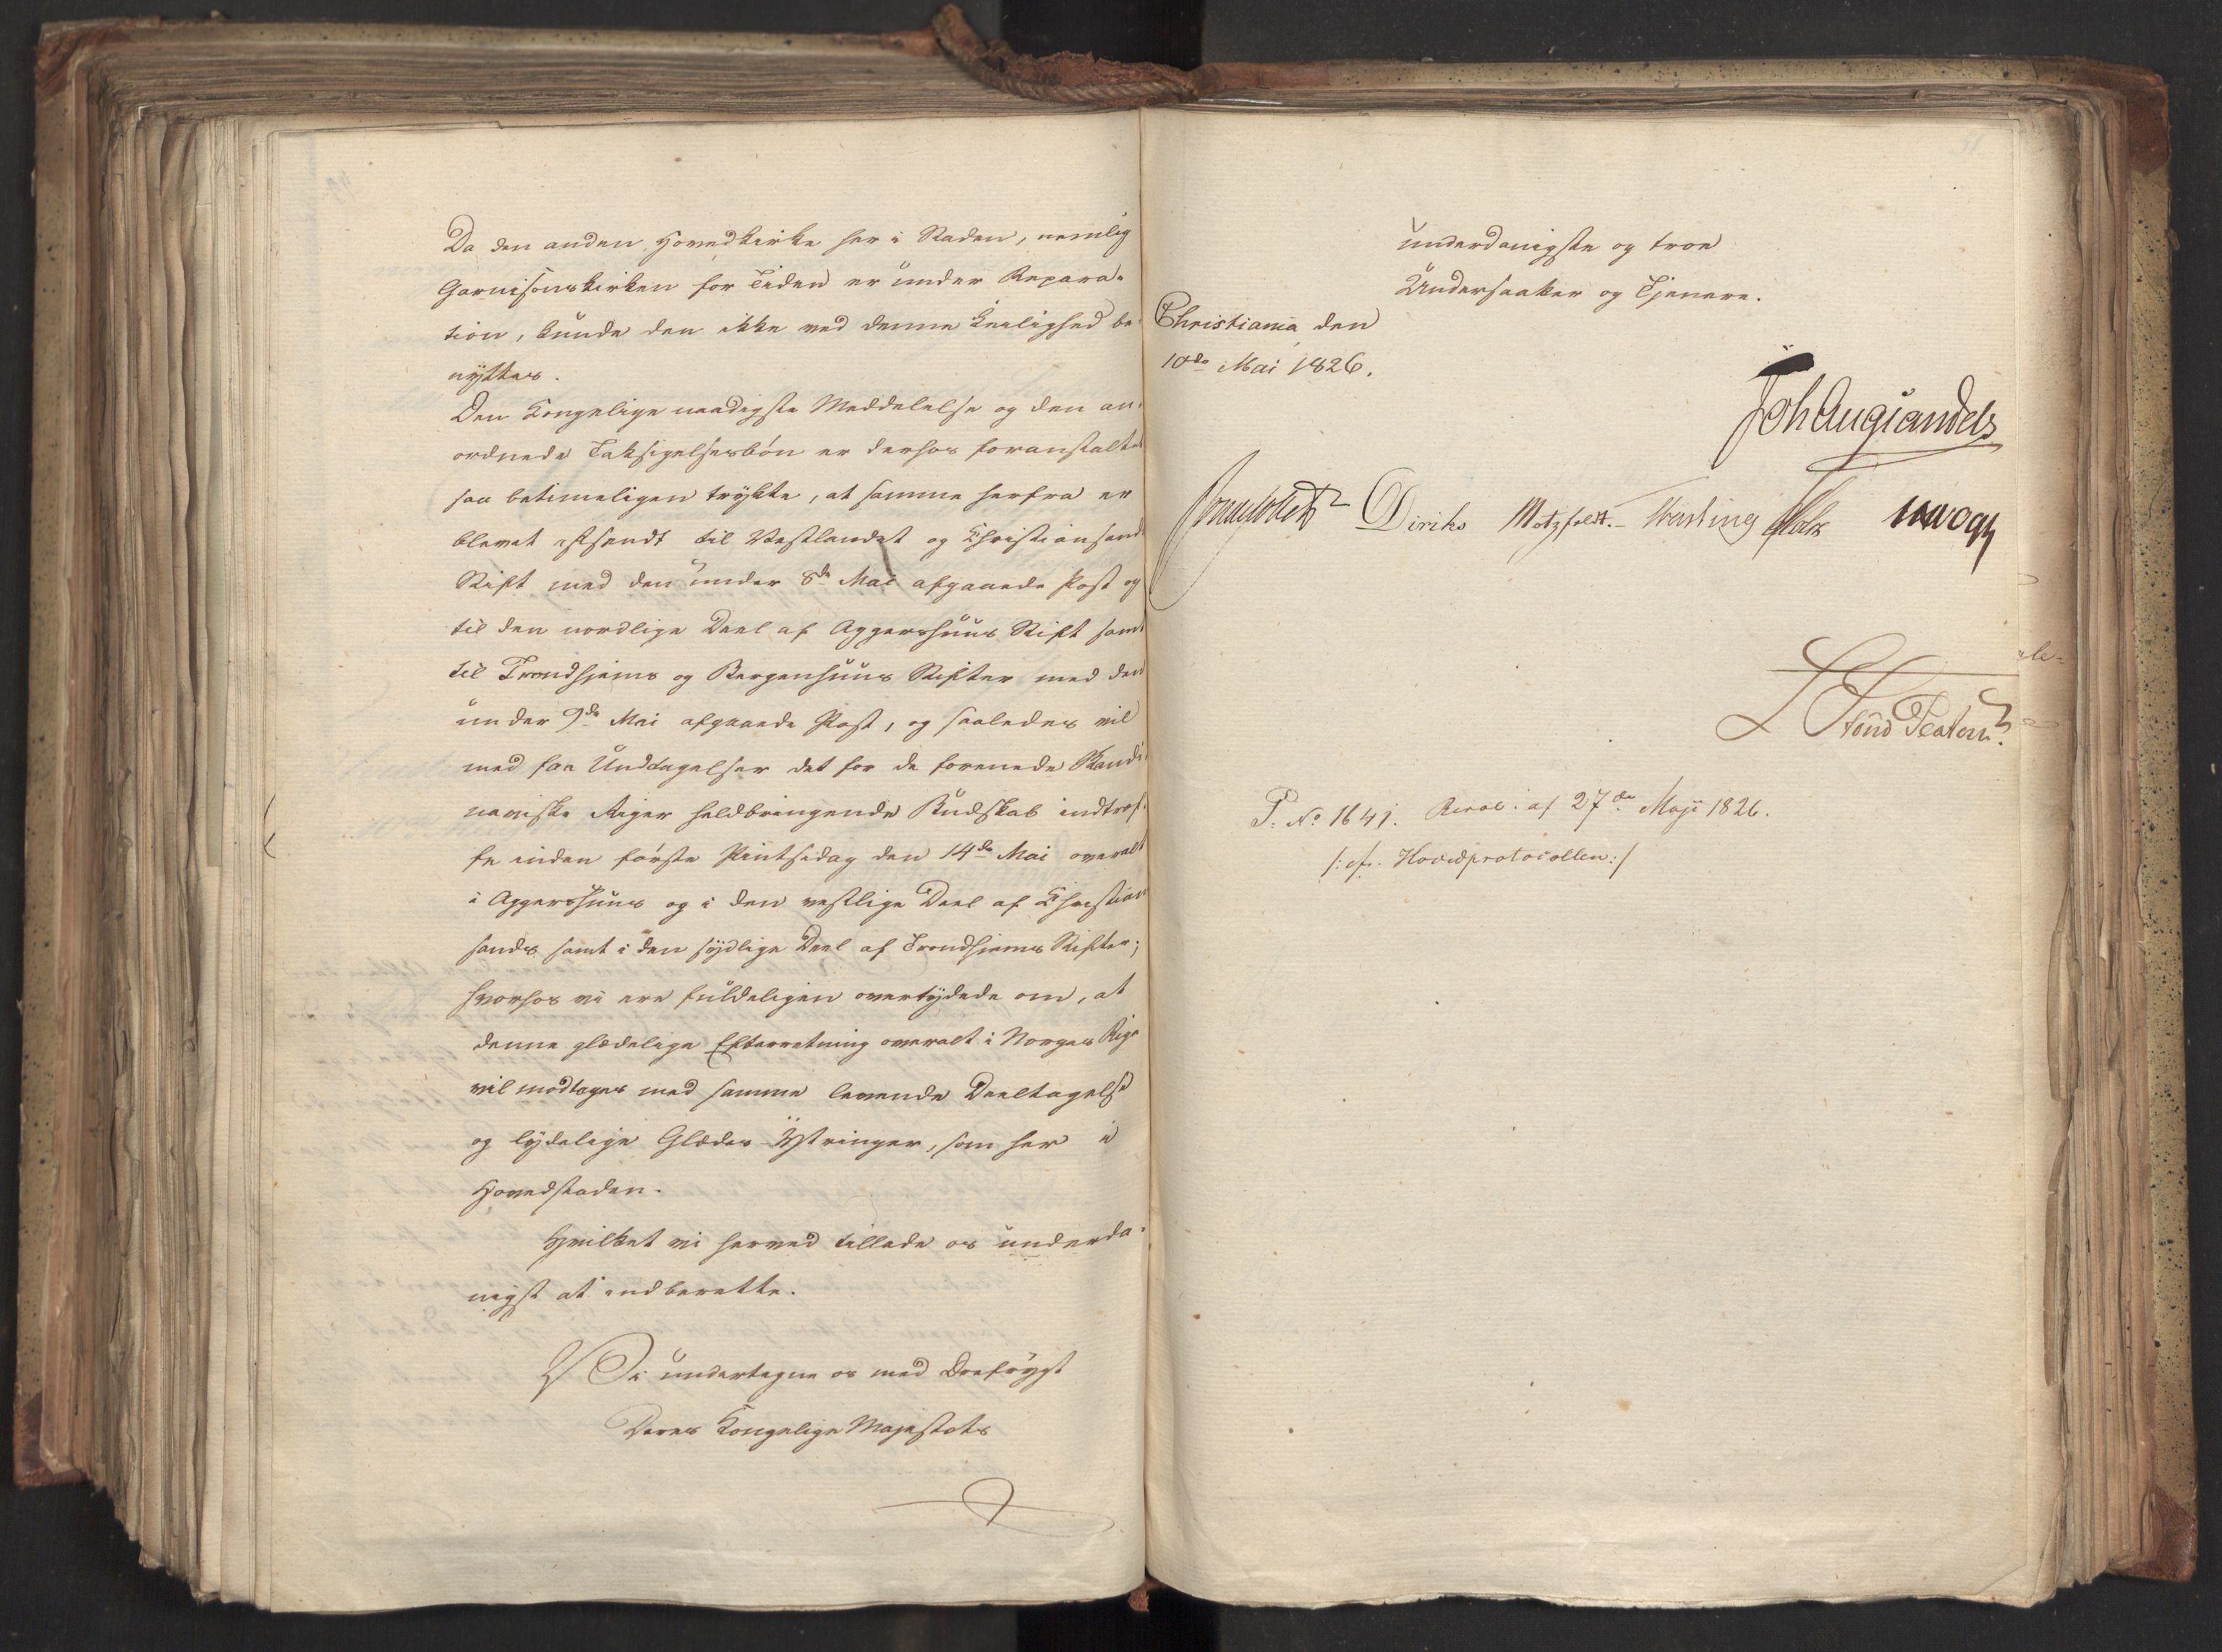 Da den anden Hovedkirke her i Staden, nemlig
Garnisonskirken for Tiden er under Repara-
tion, kunde den ikke ved denne Leilighed be-
nyttes.
Den Kongelige naadigste Meddelelse og den an-
ordnede Taksigelsesbön er derhos foranstaltet
saa betimeligen trykte, at samme herfra er
blevet afsendt til Vestlandet og Christiansands
Stift med den under 8de Mai afgaaende Post og
til den nordlige Deel af Aggershuus Stift samt
til Trondhjems og Bergenhuus Stifter med den
under 9de Mai afgaaende Post, og saaledes vil
med faa Undtagelser det for de forenede Skandi-
naviske Riger heldbringende Budskab indtræf-
fe inden förste Pintsedag den 14de Mai overalt
i Aggershuus og i den vestlige Deel af Christian
sands samt i den sydlige Deel af Trondhjems Stifter;
hvorhos vi ere fuldeligen overtydede om, at
denne glædelige Efterretning overalt i Norges Rige
vil modtages med samme levende Deeltagelse
og lydelige Glædes-Yttringer, som her i
Hovedstaden.
Hvilket vi herved tillade os underda-
nigst at indberette.
Vi undertegne os med Drefrygt
Deres Kongelige Majestæts
underdanigste og troe
Undersaatter og Tjenere.
Christiania den
10de Mai 1826.
Joh Aug Sandels
Diriks Motzfeldt.
P. No 1641. Resol: af 27de Maji 1826.
/:cfr. Hovedprotocollen:/